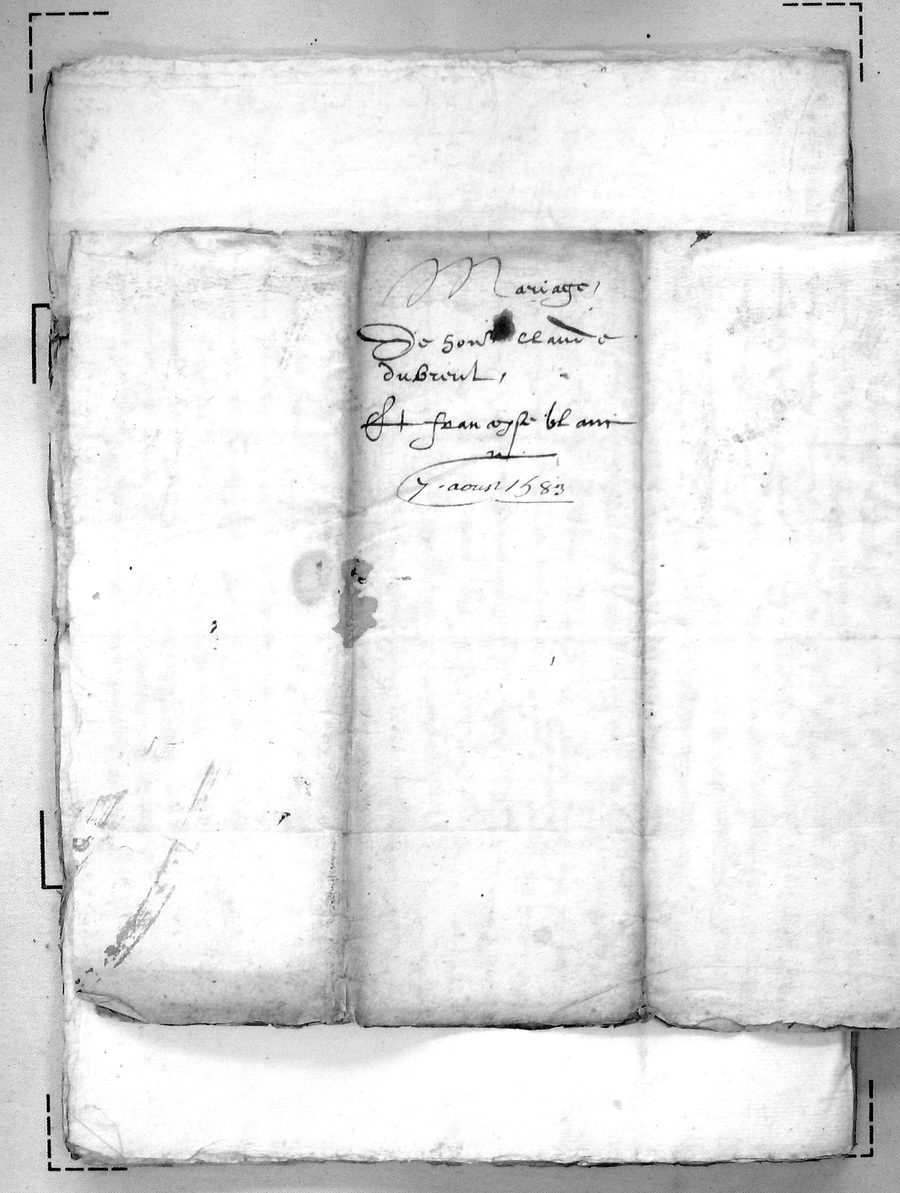 Mariage,
De hon^e claude
dubreul,
Et francoyse blanc
7. aoust 1583